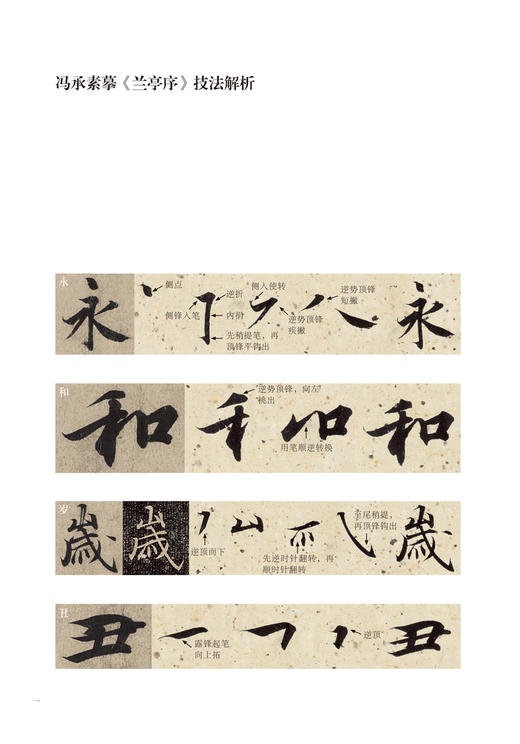 冯承素摹《兰亭序》技法解析
永
侧点
侧锋入笔
逆折
内擫
先稍提笔，再
顶锋平钩出
侧入使转
逆势顶锋
疾撇
逆势顶锋
短撇
永
永
和
逆势顶锋，向左
挑出
用笔顺逆转换
和
和
岁
逆顶而下
先逆时针翻转，再
顺时针翻转
至尾稍提，
再顶锋钩出
歲
歲
歲
丑
露锋起笔
向上拓
逆顶
丑
丑
一